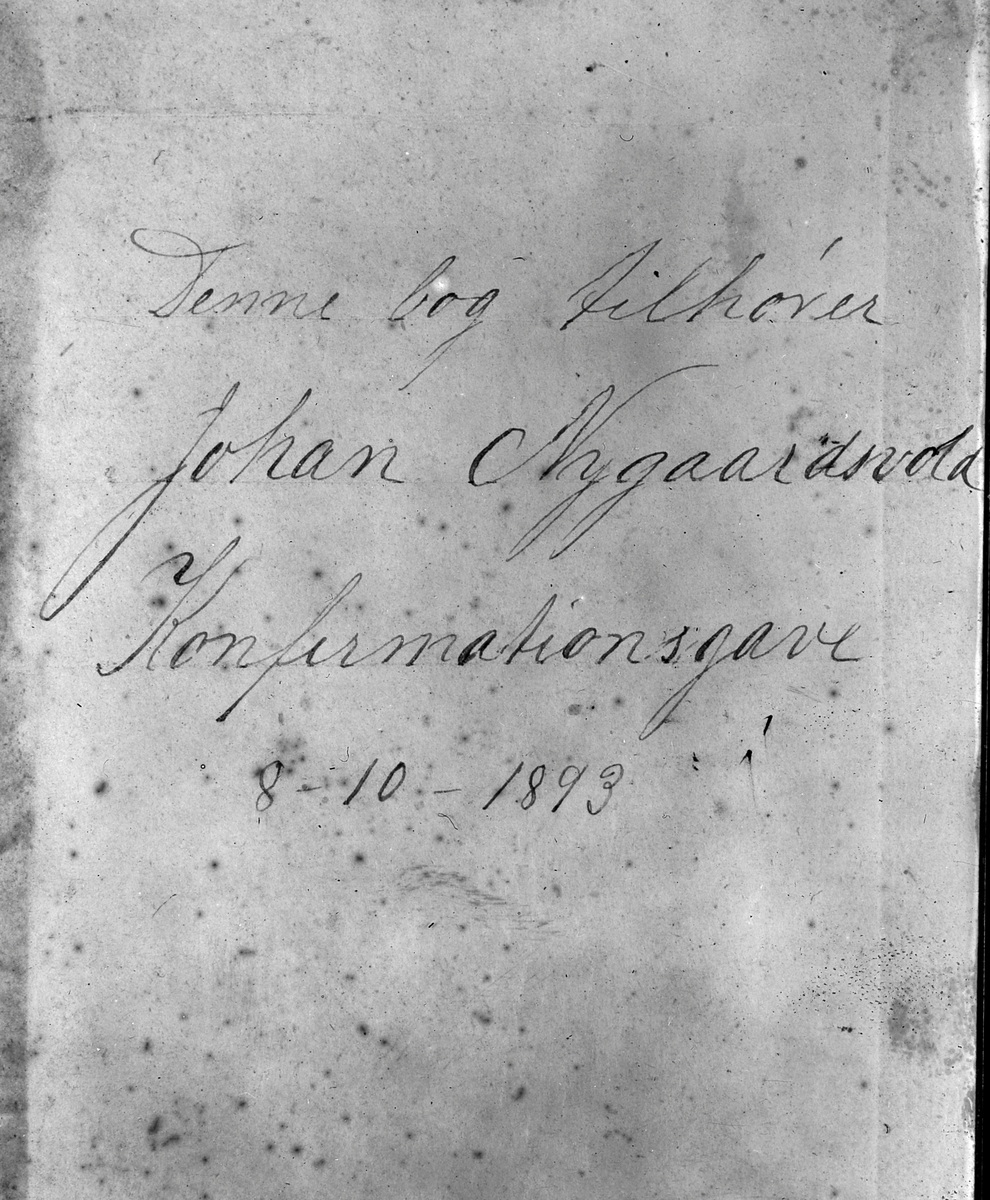 Denne bog tilhører
Johan Nygaardsvold
Konfirmationsgave
8-10-1893